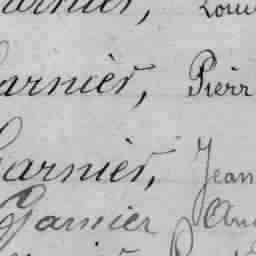 arnier, Loui
arnier, Pierr
Garnier, Jean
Garnier And